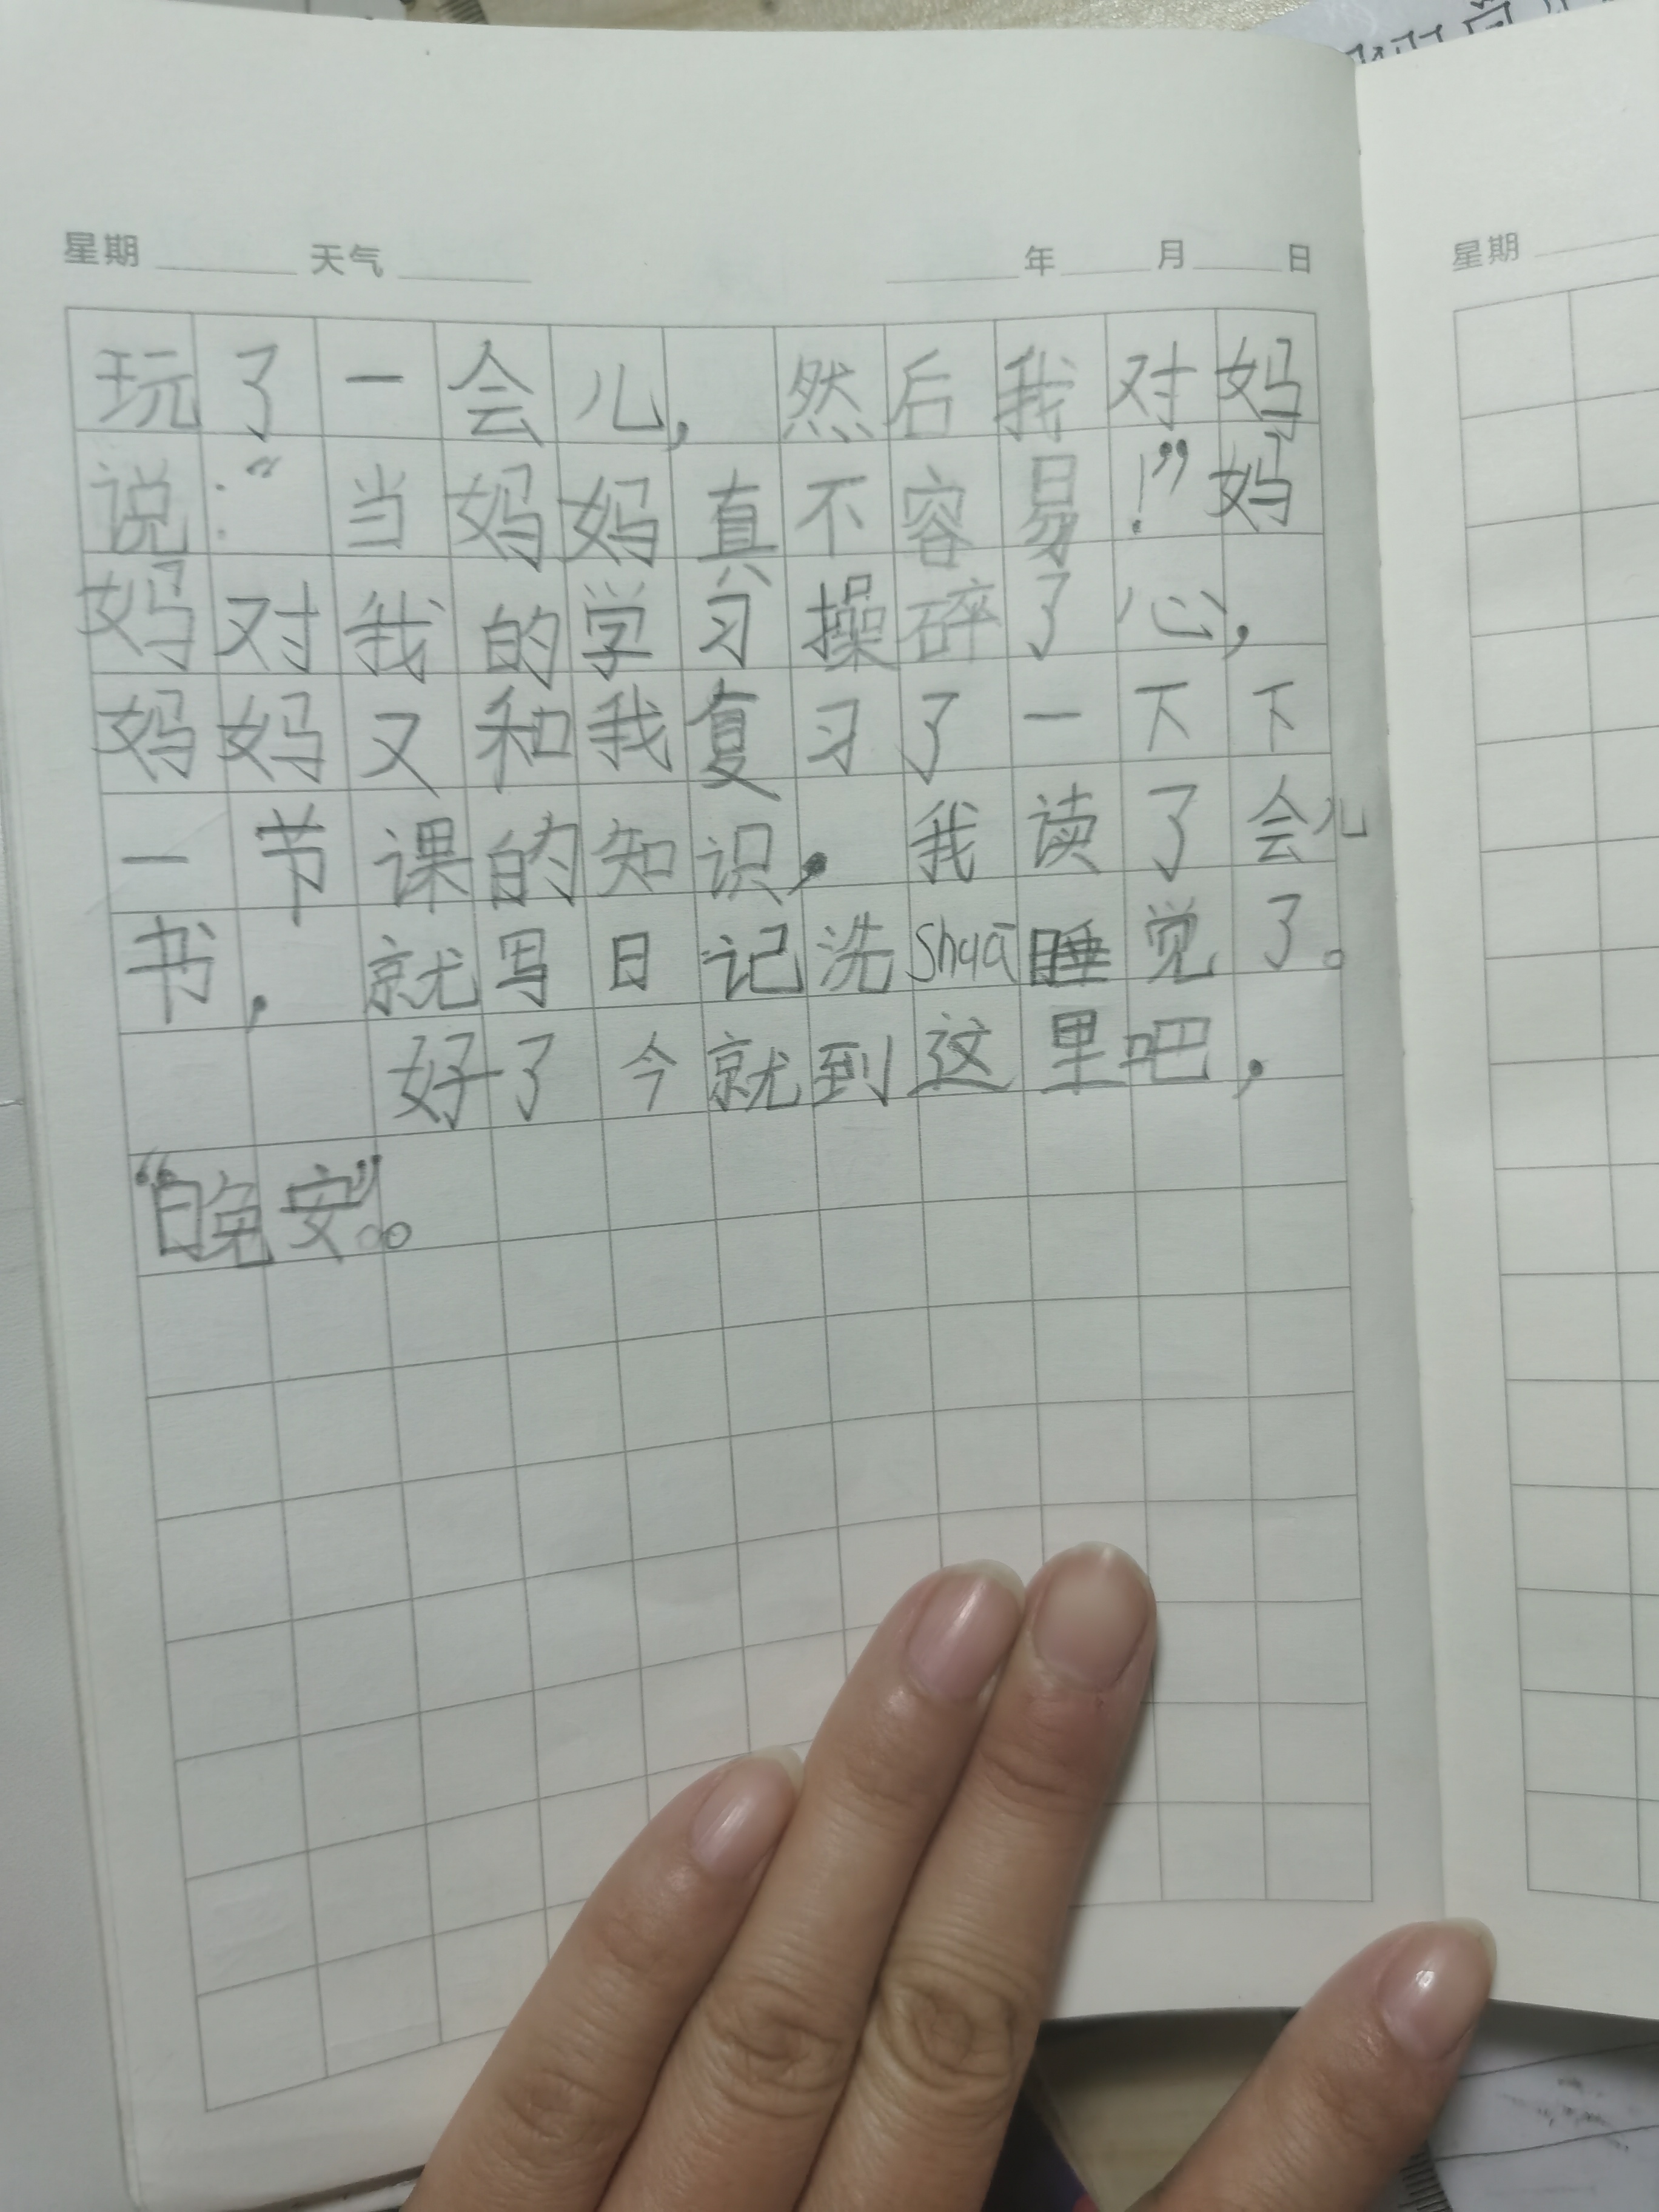 星期 天气 年 月 日
玩了一会儿，然后我对妈
说：“当妈妈真不容易！”妈
妈对我的学习操碎了心，
妈妈又和我复习了一下下
一节课的知识，我读了会儿
书，就写日记洗shuā睡觉了。
好了今就到这里吧，
“晚安”。
星期